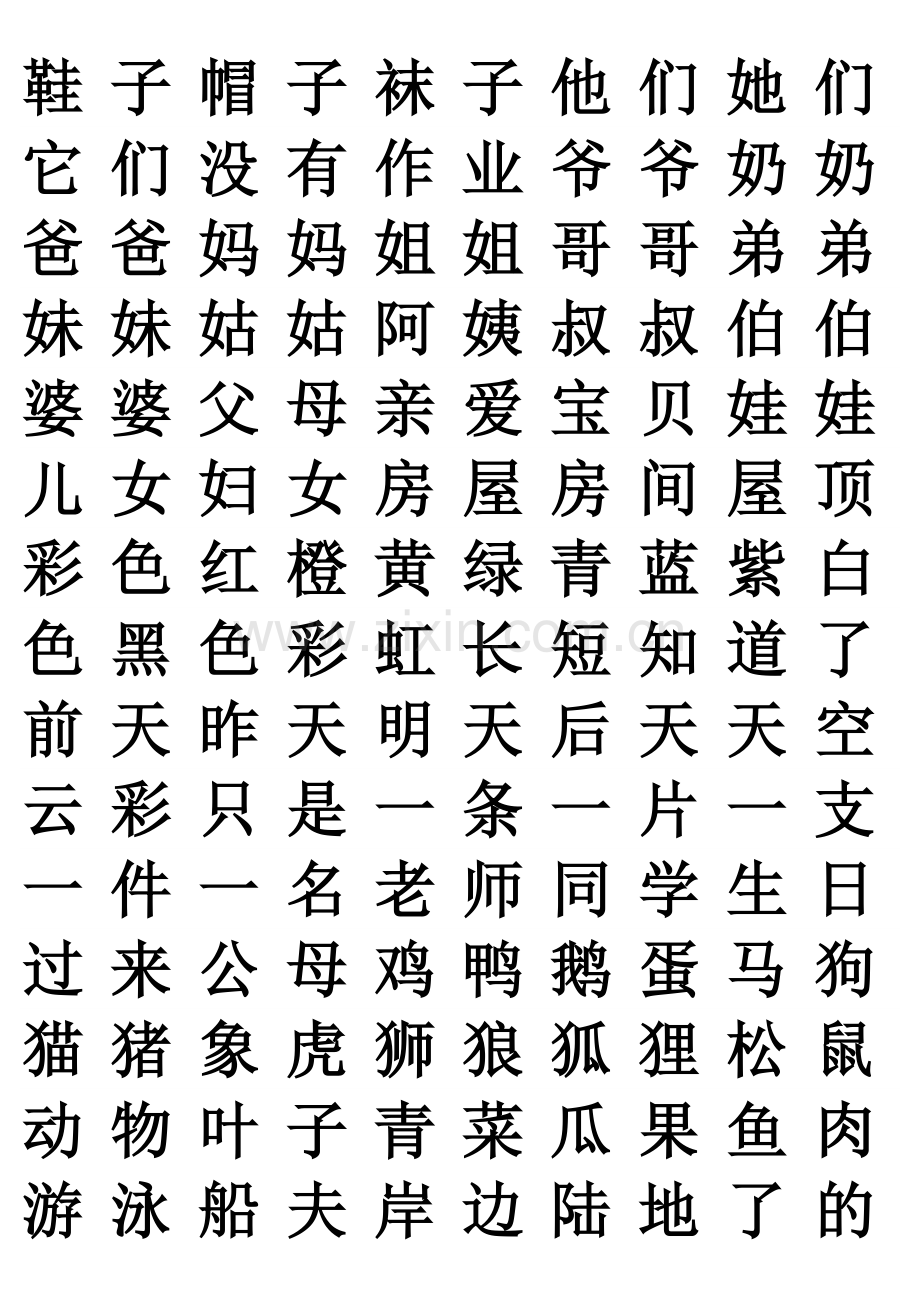 鞋子帽子袜子他们她们
它们没有作业爷爷奶奶
爸爸妈妈姐姐哥哥弟弟
妹妹姑姑阿姨叔叔伯伯
婆婆父母亲爱宝贝娃娃
儿女妇女房屋房间屋顶
彩色红橙黄绿青蓝紫白
色黑色彩虹长短知道了
www.zixin.com.cn
前天昨天明天后天天空
云彩只是一条一片一支
一件一名老师同学生日
过来公母鸡鸭鹅蛋马狗
猫猪象虎狮狼狐狸松鼠
动物叶子青菜瓜果鱼肉
游泳船夫岸边陆地了的